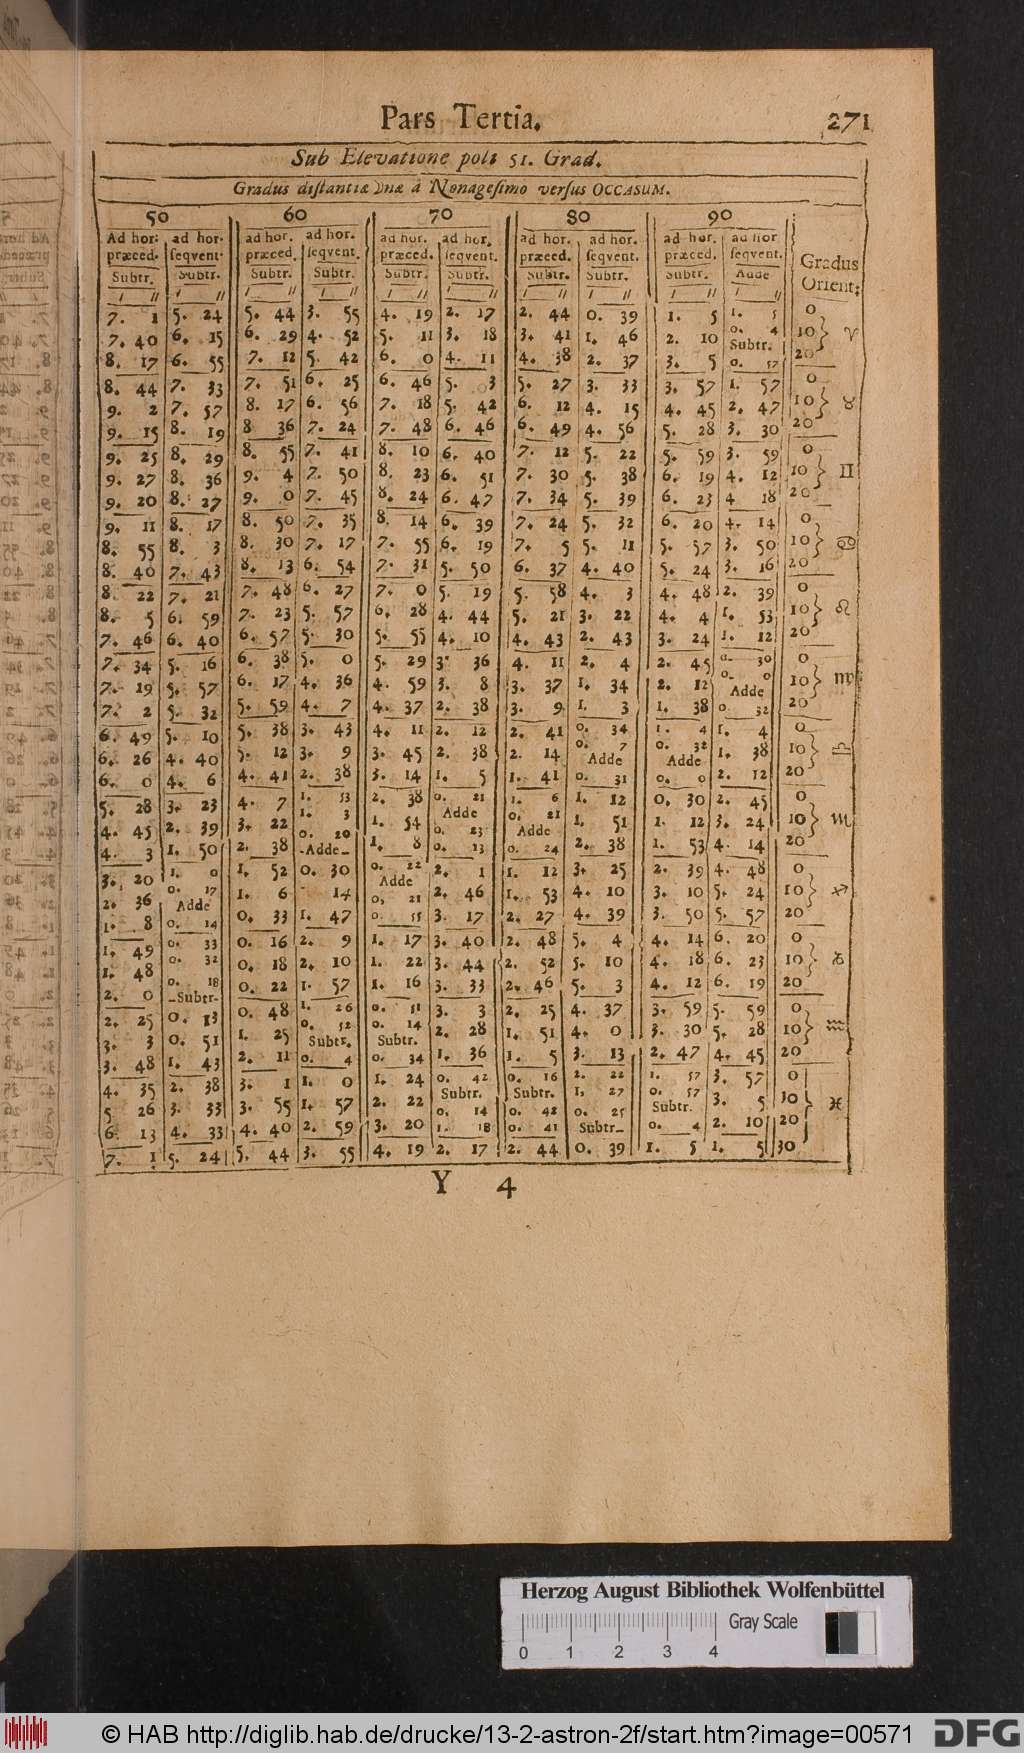 Pars Tertia. 271
Sub Elevatione poli 51. Grad.
Gradus distantiæ ☽næ à Nonagesimo versus OCCASUM.
50 60 70 80 90
Ad hor: ad hor. ad hor. ad hor. ad hor. ad hor. ad hor. ad hor. ad hor. ad hor
præced. seqvent. præced. seqvent. præced. seqvent. præced. seqvent. præced. seqvent. Gradus
Subtr. Subtr. Subtr. Subtr. Subtr. Subtr. Subtr. Subtr. Subtr. Adde Orient:
7. 1 5. 24 5. 44 3. 55 4. 19 2. 17 2. 44 0. 39 1. 5 1. 5 0
7. 40 6. 15 6. 29 4. 52 5. 11 3. 18 3. 41 1. 46 2. 10 0. 4 Subtr. 10 ♈
8. 17 6. 55 7. 12 5. 42 6. 0 4. 11 4. 38 2. 37 3. 5 0. 57 20
8. 44 7. 33 7. 51 6. 25 6. 46 5. 3 5. 27 3. 33 3. 57 1. 57 0
9. 2 7. 57 8. 17 6. 56 7. 18 5. 42 6. 12 4. 15 4. 45 2. 47 10 ♉
9. 15 8. 19 8 36 7. 24 7. 48 6. 46 6. 49 4. 56 5. 28 3. 30 20
9. 25 8. 29 8. 55 7. 41 8. 10 6. 40 7. 12 5. 22 5. 59 3. 59 0
9. 27 8. 36 9. 4 7. 50 8. 23 6. 51 7. 30 5. 38 6. 19 4. 12 10 ♊
9. 20 8. 27 9. 0 7. 45 8. 24 6. 47 7. 34 5. 39 6. 23 4 18 20
9. 11 8. 17 8. 50 7. 35 8. 14 6. 39 7. 24 5. 32 6. 20 4. 14 0
8. 55 8. 3 8. 30 7. 17 7. 55 6. 19 7. 5 5. 11 5. 57 3. 50 10 ♋
8. 40 7. 43 8. 13 6. 54 7. 31 5. 50 6. 37 4. 40 5. 24 3. 16 20
8. 22 7. 21 7. 48 6. 27 7. 0 5. 19 5. 58 4. 3 4. 48 2. 39 0
8. 5 6. 59 7. 23 5. 57 6. 28 4. 44 5. 21 3. 22 4. 4 1. 53 10 ♌
7. 46 6. 40 6. 57 5. 30 5. 55 4. 10 4. 43 2. 43 3. 24 1. 12 20
7. 34 5. 16 6. 38 5. 0 5. 29 3. 36 4. 11 2. 4 2. 45 0. 30 0
7. 19 5. 57 6. 17 4. 36 4. 59 3. 8 3. 37 1. 34 2. 12 0. 0 Adde 10 ♍
7. 2 5. 32 5. 59 4. 7 4. 37 2. 38 3. 9 1. 3 1. 38 0 32 20
6. 49 5. 10 5. 38 3. 43 4. 11 2. 12 2. 41 0. 34 1. 4 1. 4 0
6. 26 4. 40 5. 12 3. 9 3. 45 2. 38 2. 14 0. 7 Adde 0. 32 Adde 1. 38 10 ♎
6. 0 4. 6 4. 41 2. 38 3. 14 1. 5 1. 41 0. 31 0. 0 2. 12 20
5. 28 3. 23 4. 7 1. 53 2. 38 0. 21 Adde 1. 6 1. 12 0. 30 2. 45 0
4. 45 2. 39 3. 22 1. 3 1. 54 0. 23 0. 21 Adde 1. 51 1. 12 3. 24 10 ♏
4. 3 1. 50 2. 38 0. 20 Adde 1. 8 0. 13 0. 24 2. 38 1. 53 4. 14 20
3. 20 1. 0 1. 52 0. 30 0. 22 Adde 2. 1 1. 12 3. 25 2. 39 4. 48 0
2. 36 0. 17 Adde 1. 6 14 0. 21 2. 46 1. 53 4. 10 3. 10 5. 24 10 ♐
1. 8 0. 14 0. 33 1. 47 0. 3. 17 2. 27 4. 39 3. 50 5. 57 20
1. 49 0. 33 0. 16 2. 9 1. 17 3. 40 2. 48 5. 4 4. 14 6. 20 0
1. 48 0. 32 0. 18 2. 10 1. 22 3. 44 2. 52 5. 10 4. 18 6. 23 10 ♑
2. 0 0. 18 Subtr. 0. 22 1. 57 1. 16 3. 33 2. 46 5. 3 4. 12 6. 19 20
2. 25 0. 13 0. 48 1. 26 0. 51 3. 3 2. 25 4. 37 3. 59 5. 59 0
3. 3 0. 51 1. 25 0. 52 Subtr. 0. 14 Subtr. 2. 28 1. 51 4. 0 3. 30 5. 28 10 ♒
3. 48 1. 43 2. 11 0. 4 0. 34 1. 36 1. 5 3. 13 2. 47 4. 45 20
4. 35 2. 38 3. 1 1. 0 1. 24 0. 42 Subtr. 0. 16 Subtr. 2. 22 1. 57 3. 57 0
5 26 3. 33 3. 55 1. 57 2. 22 0. 14 0. 42 1. 27 0. 57 Subtr. 3. 5 10 ♓
6. 13 4. 33 4. 40 2. 59 3. 20 1. 18 0. 41 0. 25 Subtr. 0. 4 2. 10 20
7. 1 5. 24 5. 44 3. 55 4. 19 2. 17 2. 44 0. 39 1. 5 1. 5 30
Y 4
Herzog August Bibliothek Wolfenbüttel
Gray Scale
0 1 2 3 4
© HAB http://diglib.hab.de/drucke/13-2-astron-2f/start.htm?image=00571 DFG